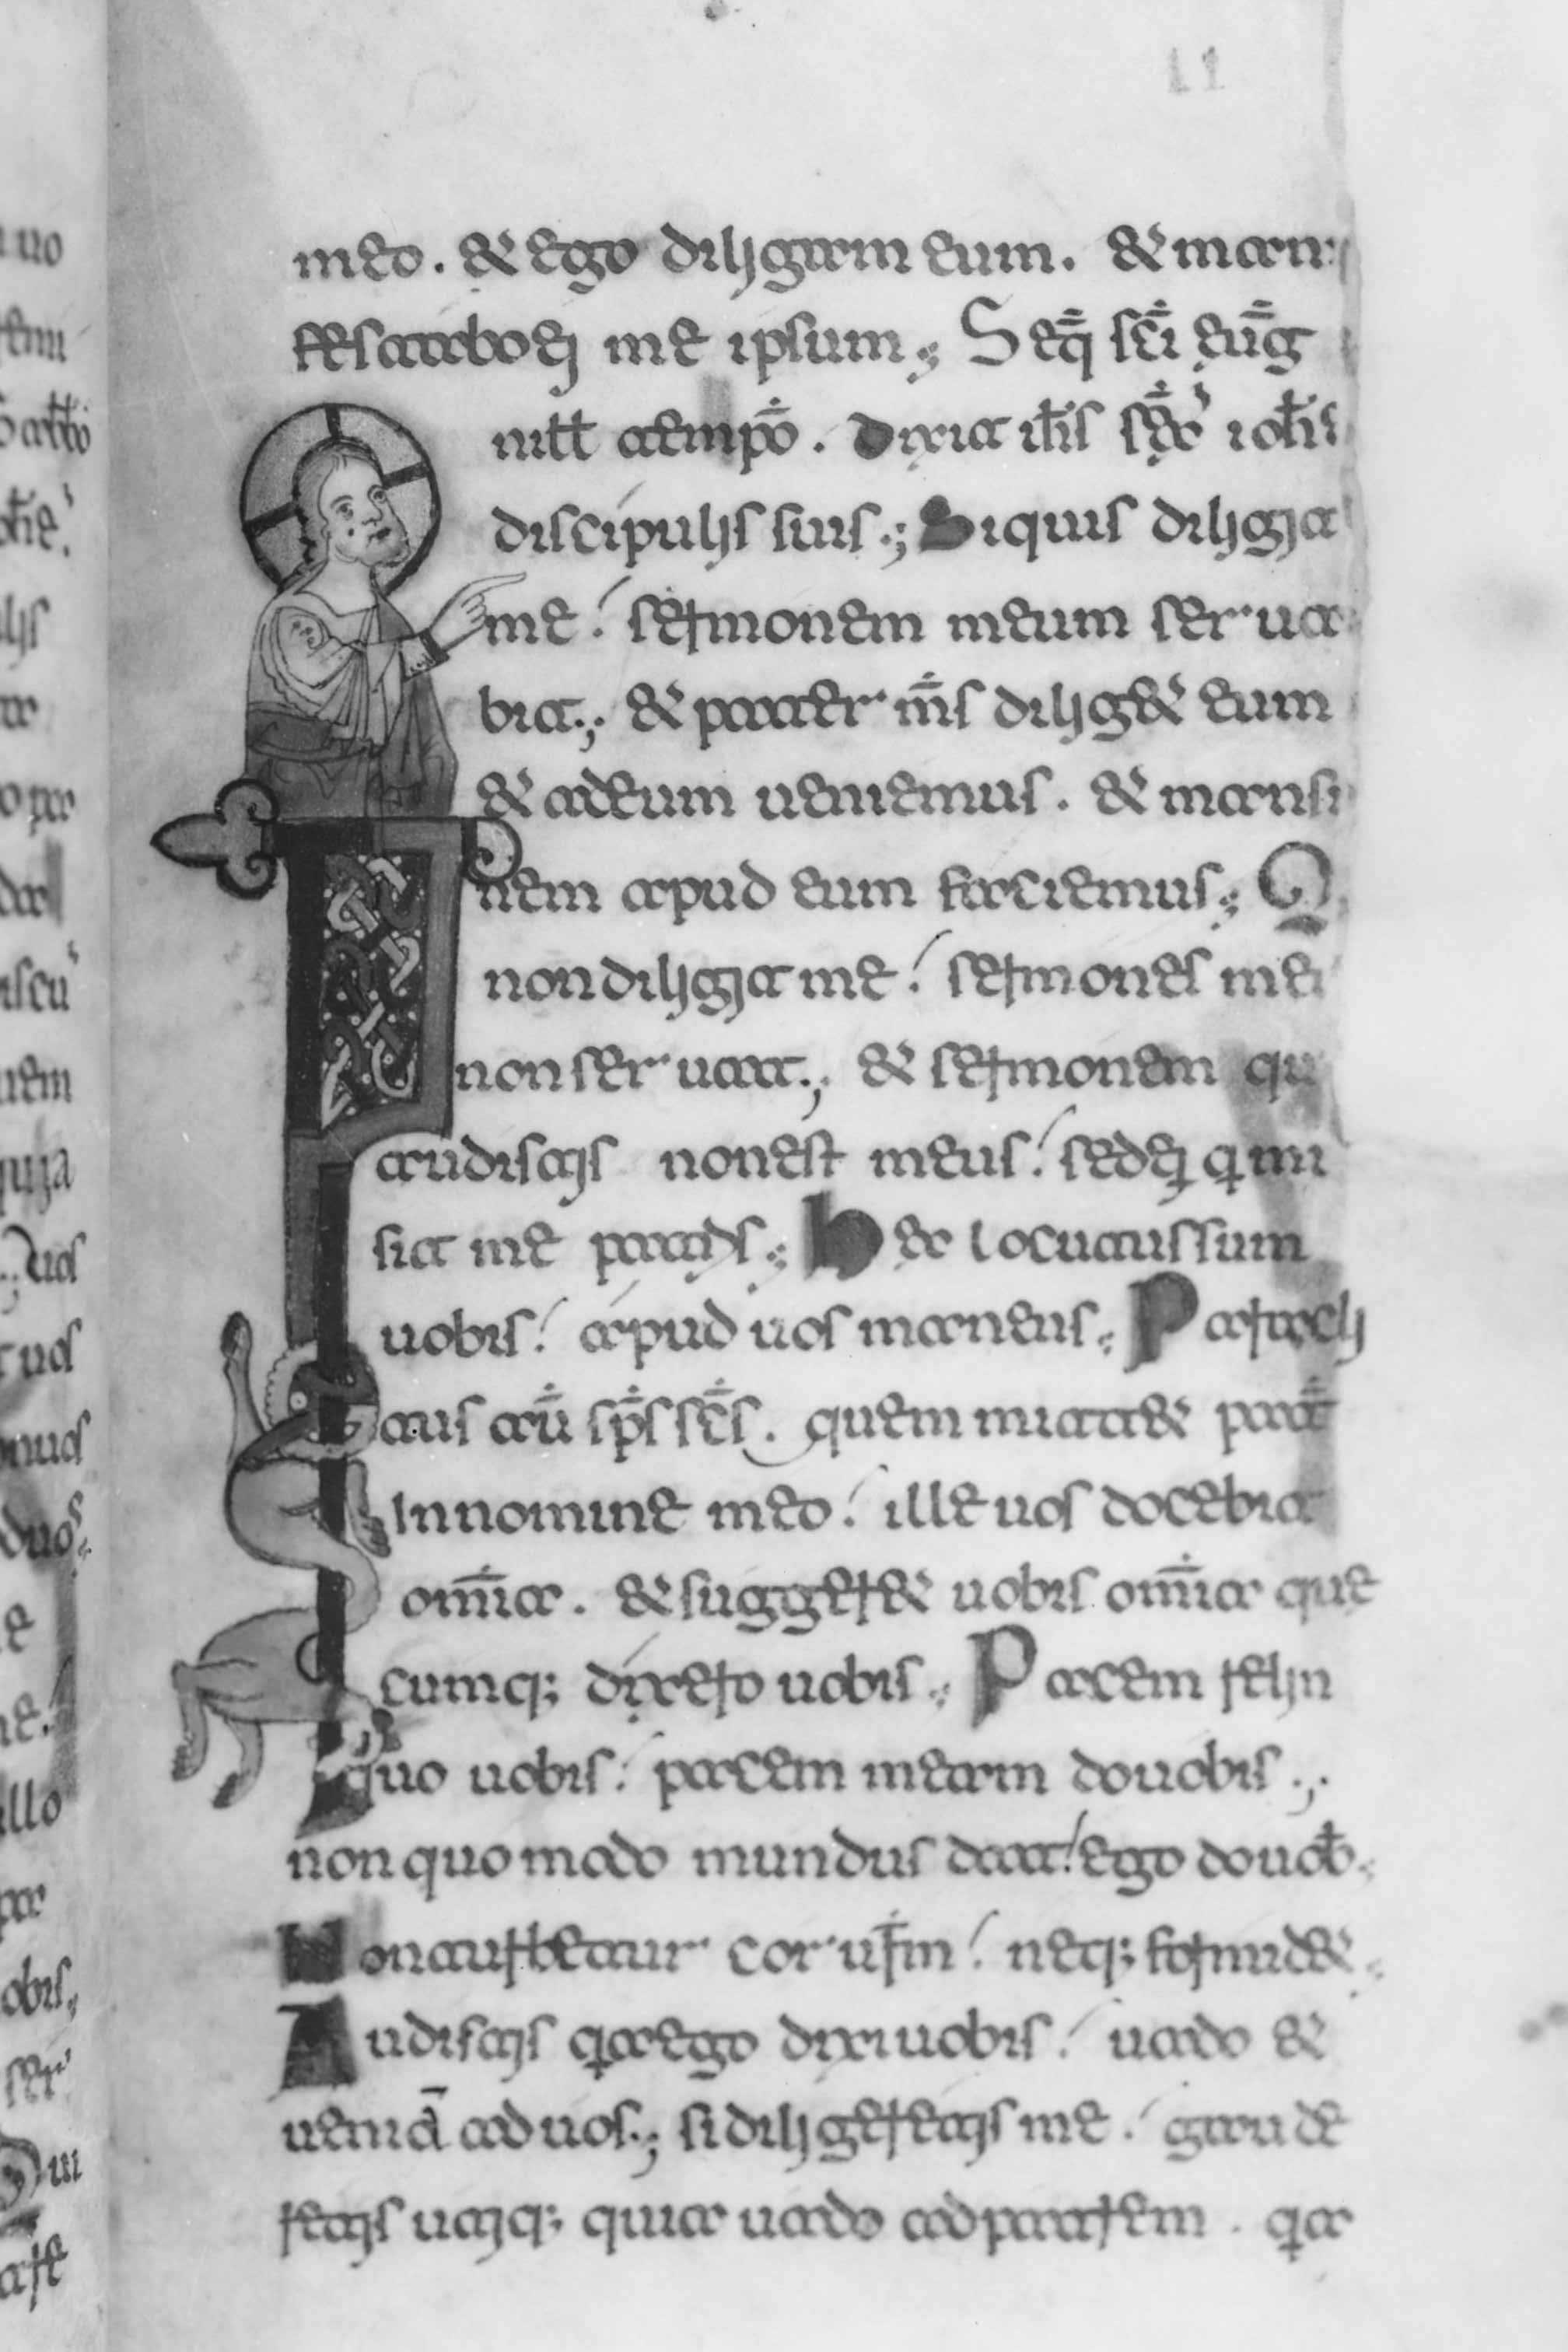 11
meo. & ego diligam eum. & mani
festabo ei me ipsum; Seq̄ sc̄i eūg
In illt tempō. Dixit ih̄s sc̄đ ioh̄s
discipulis suis.; Siquis diligit
me! sermonem meum serua
bit.; & pater m̄s diliget eum
& adeum ueniemus. & mansi
onem apud eum faciemus; Q
non diligit me! sermones mei
non seruat.; & sermonem qu
audistis non est meus! sed ei q mi
sit me patris; hec locutus sum
uobis! apud uos manens; Paracli
tus aū sp̄s sc̄s. quem mittet pat̄
Innomine meo! ille uos docebit
om̄ia. & suggeret uobis om̄ia que
cumq; dixero uobis; Pacem relin
quo uobis! pacem meam do uobis.;
non quomodo mundus dat! ego do uob;
Non turbetur cor ur̄m! neq; formidet;
Audistis qa ego dixi uobis! uado &
uenīa ad uos.; si diligeretis me! gaude
retis utiq; quia uado ad patrem. qa